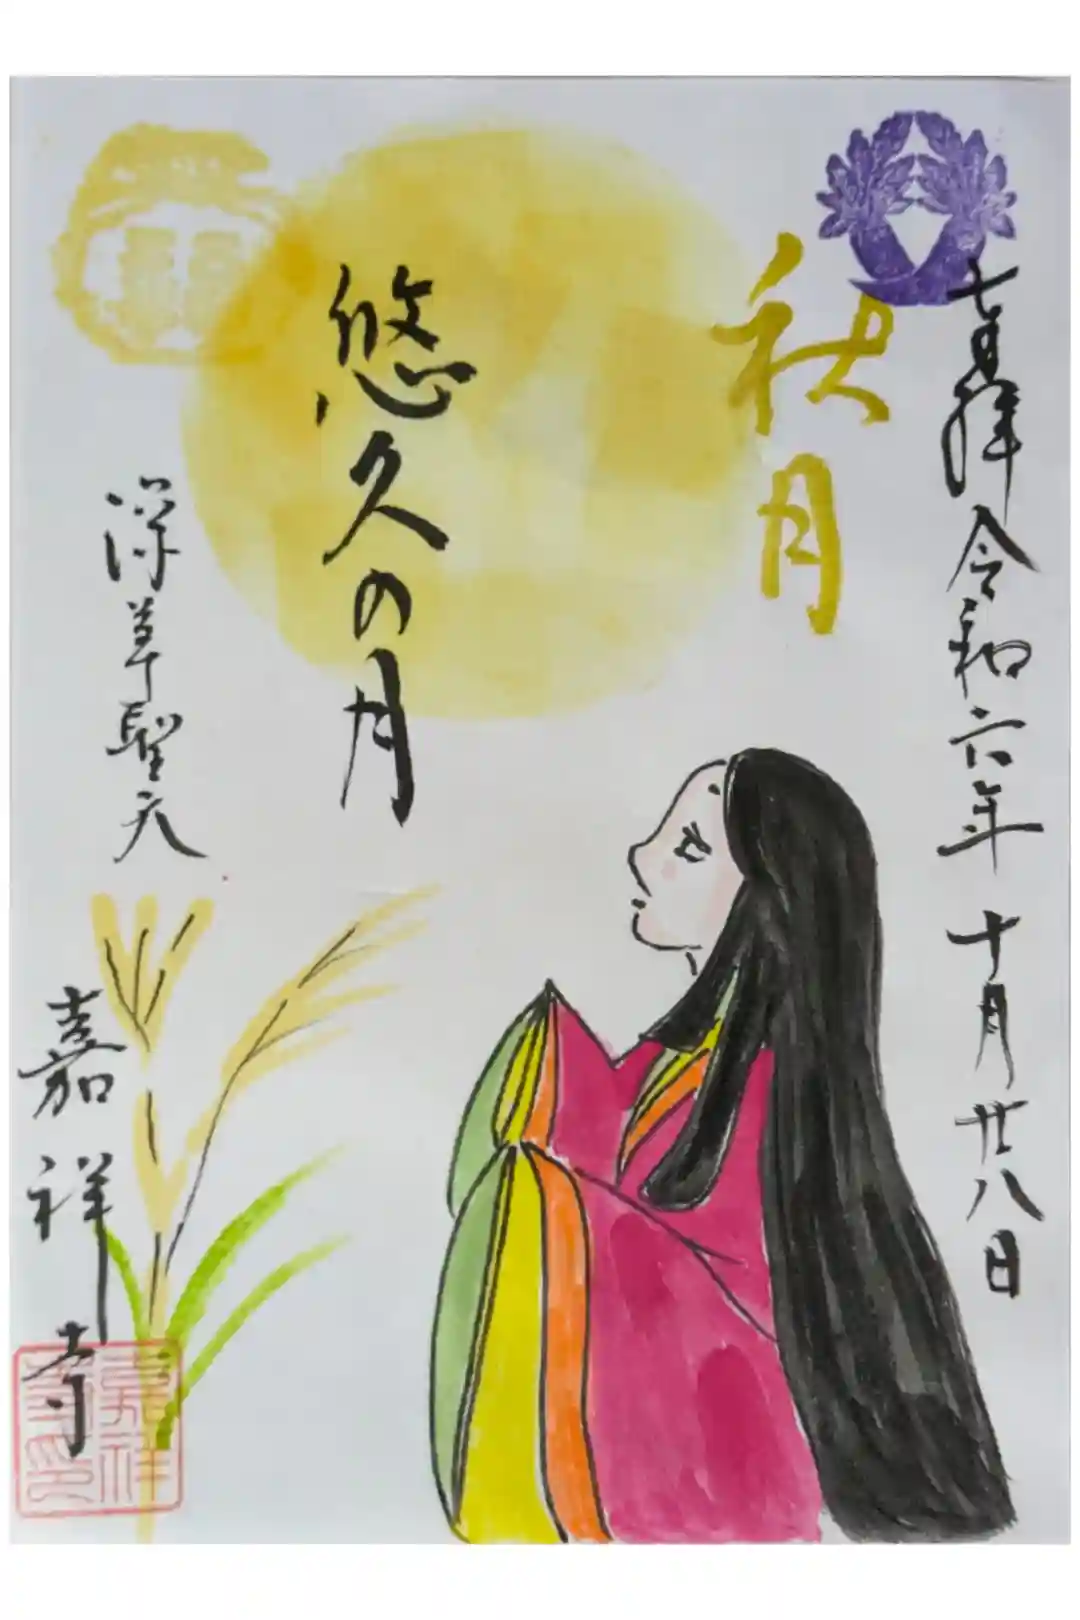 奉拝 令和六年 十月 廿八日
秋月
悠久の月
深草聖天
嘉祥寺
嘉祥寺印